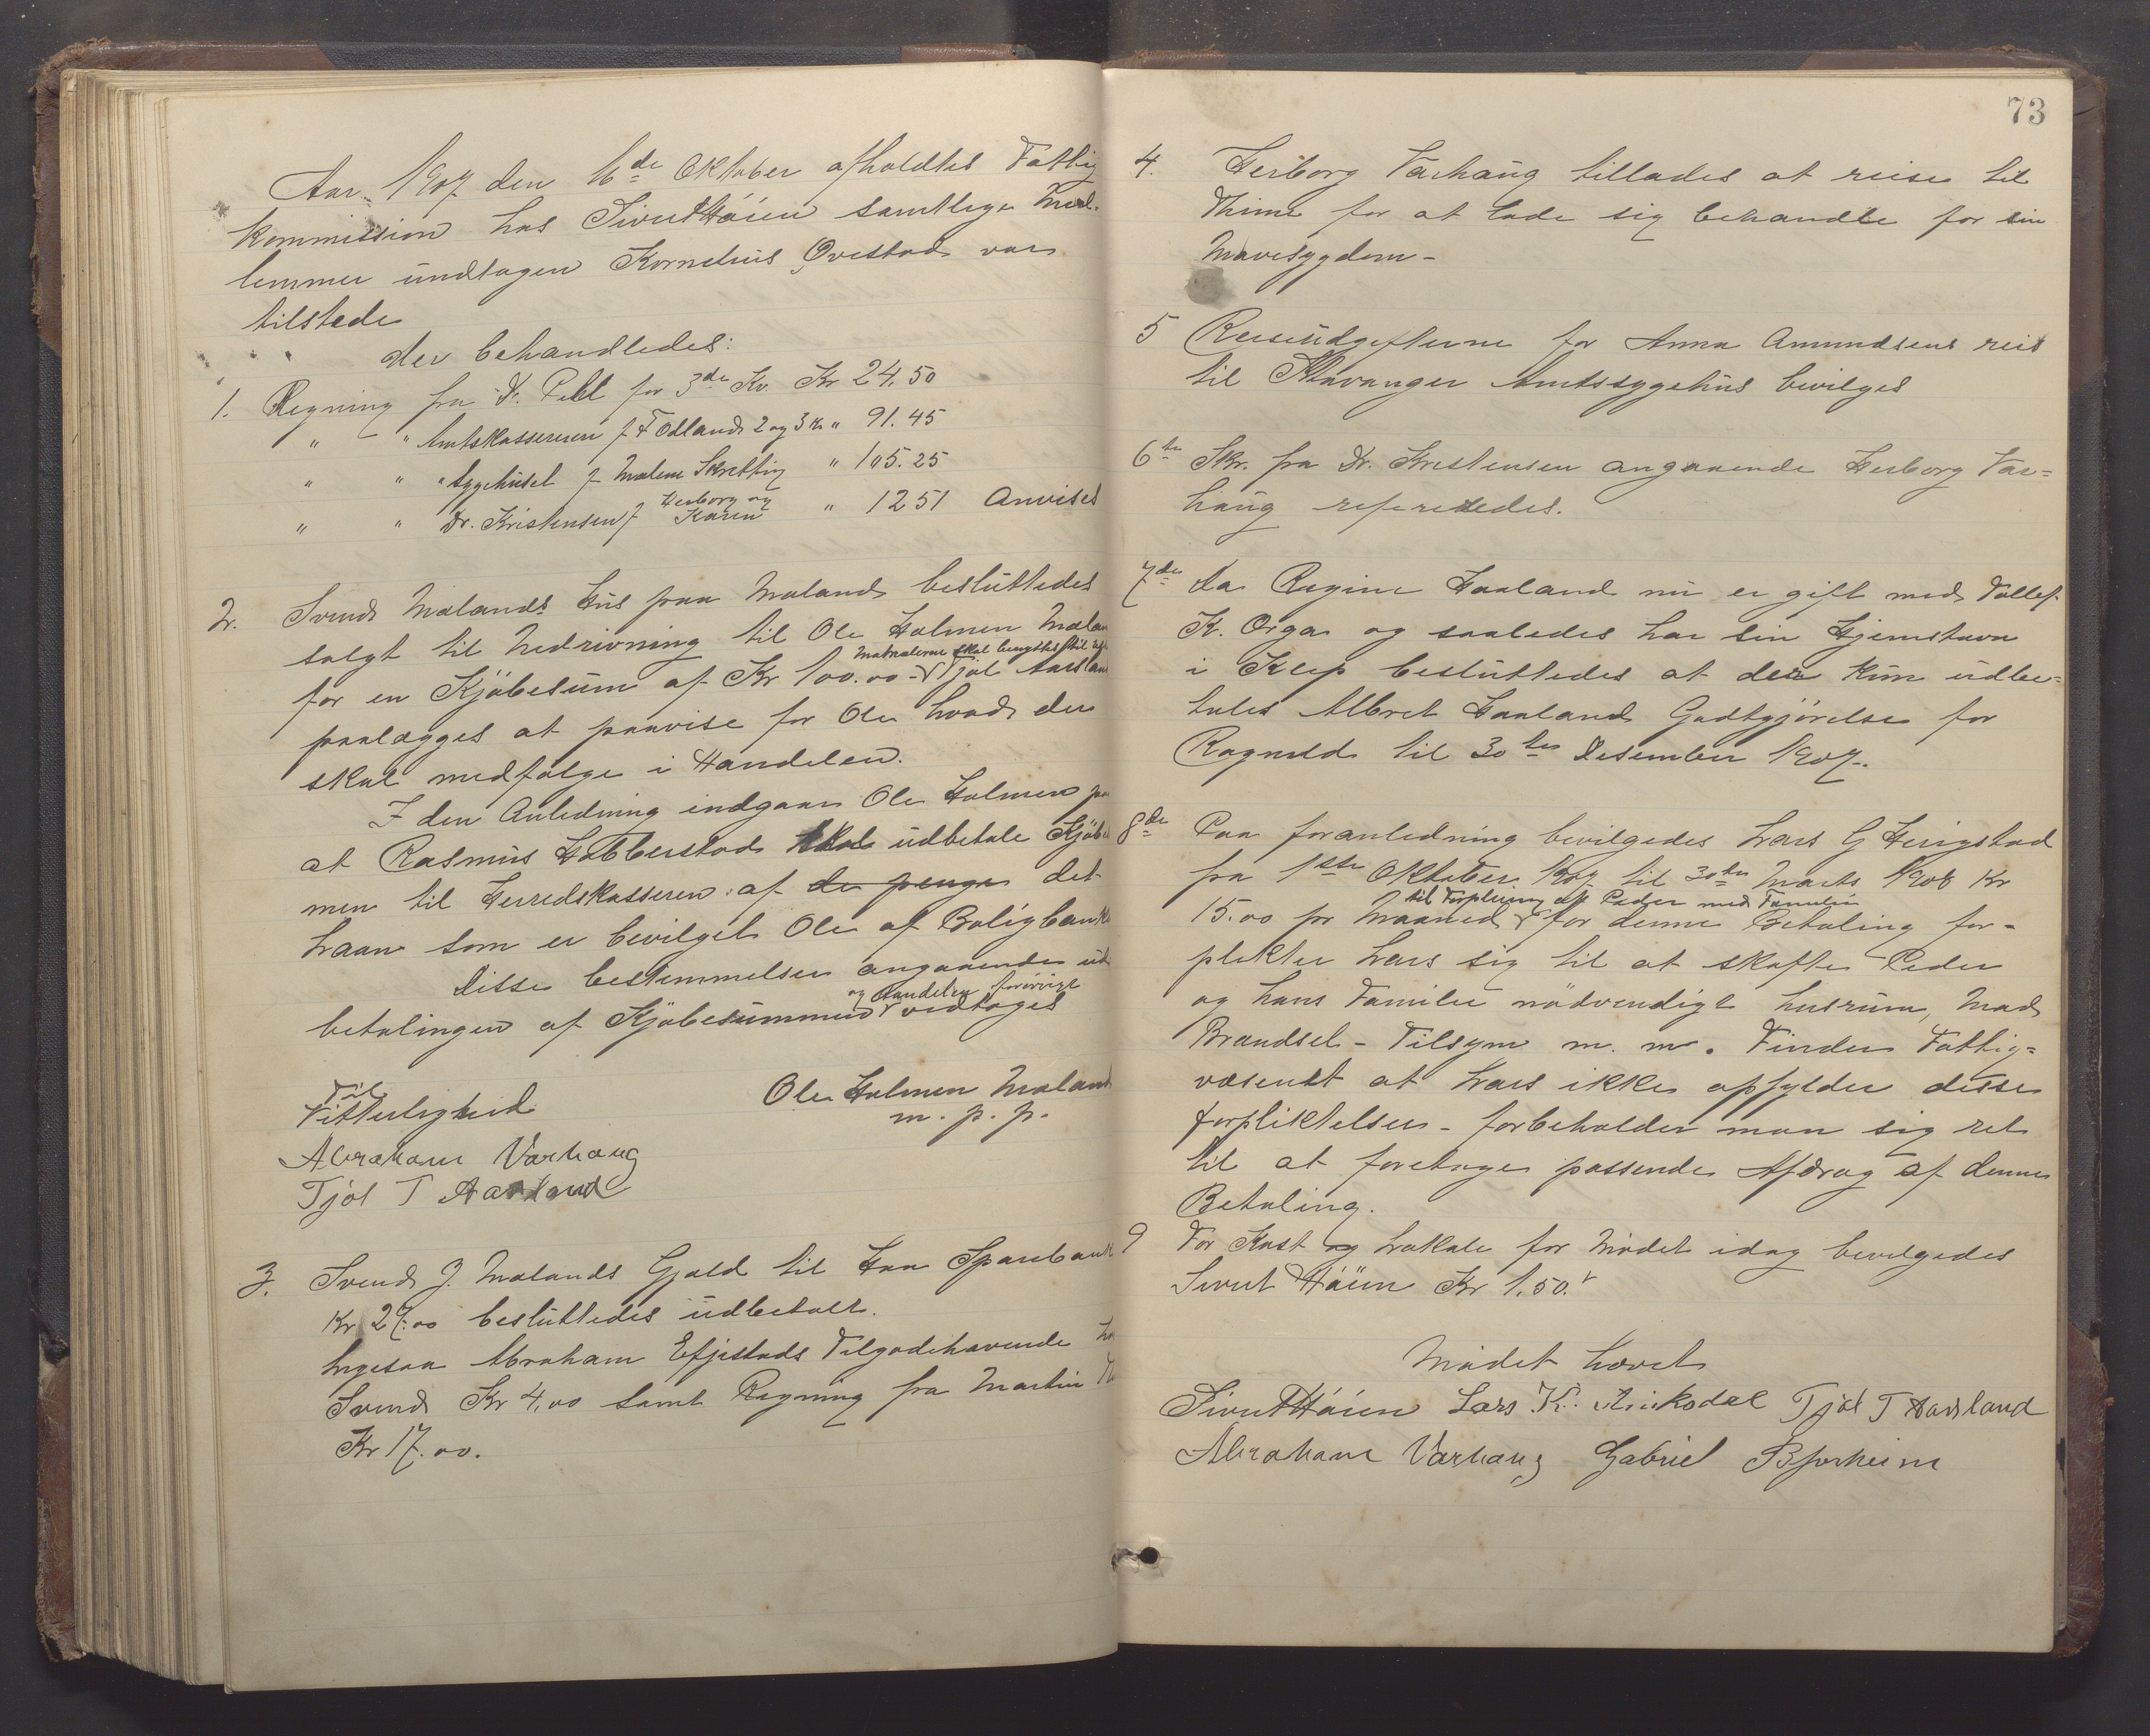 Aar 1907 den 16de Oktober afholdtes Fattig
kommission hos Sivert Höien samtlige Med-
lemmer undtagen Kornelius Ovestad var
tilstede
der behandledes:
1. Regning fra Dr. Pell for 3de Kv. Kr 24.50
" " Amtskassereren f T Odland 2 og 3 Kv " 91.45
" " Sygehuset f Malene Skretting " 105.25
" " Dr. Kristensen f Herborg og Karen " 1251 Anvises
2. Svend Malands Hus paa Maland besluttedes
solgt til Nedrivning til Ole Holmen Malan
Materialerne skal benyttes til
for en Kjöbesum af Kr 100.00 - Tjöl Aarsland
paalægges at paavise for Ole hvad der
skal medfölge i Handelen.
I den Anledning indgaar Ole Holmen pa
at Rasmus Hobberstad skal udbetale Kjöbe
men til Herredskasseren af de penge det
Laan som er bevilget Ole af Boligbanke
Disse bestemmelser angaaende ud
og Handelen forövrigt
betalingen af Kjöbesummen vedtoges
Til
Vitterlighed
Ole Holmen Maland
m. p. p.
Abraham Varhaug
Tjöl T Aarsland
3. Svend J. Malands Gjæld til Haa Sparebank
Kr 27.00 besluttedes udbetalt.
Ligesaa Abraham Efjestads Tilgodehavende ho
Svend Kr 4,00 samt Regning fra Martin
Kr 17.00.
73
4. Herborg Varhaug tillades at reise til
Thime for at lade sig behandle for sin
Mavesygdom -
5 Reiseudgifterne for Anna Amundsens reis
til Stavanger Amtssygehus bevilges
6te Skr. fra Dr. Kristensen angaaende Herborg Var=
haug refereredes.
7de Da Regine Haaland nu er gift med Tollef
K. Orga og saaledes har sin Hjemstavn
i Klep besluttedes at der kun udbe=
tales Albret Haaland Godtgjörelse for
Ragnild til 30te Desember 1907.
8de Paa foranledning bevilgedes Lars G Herigstad
fra 1ste Oktober 1907 til 30te Marts 1908 Kr
til Forpleining af Peder med Familie
15.00 pr Maaned for denne Betaling for-
plikter Lars sig til at skaffe Peder
og hans Familie nödvendigt husrum, Mad
Brændsel - Tilsyn m. m. Finder Fattig=
væsenet at Lars ikke opfylder disse
forpliktelser - forbeholder man sig ret
til at foretage passende Afdrag af denne
Betaling.
9 For Kost og Lokale for Mödet idag bevilgedes
Sivert Höien Kr 1.50.
Mödet hævet
Sivert Höien Lars K. Aniksdal Tjöl T Aarsland
Abraham Varhaug Gabriel Bjorheim